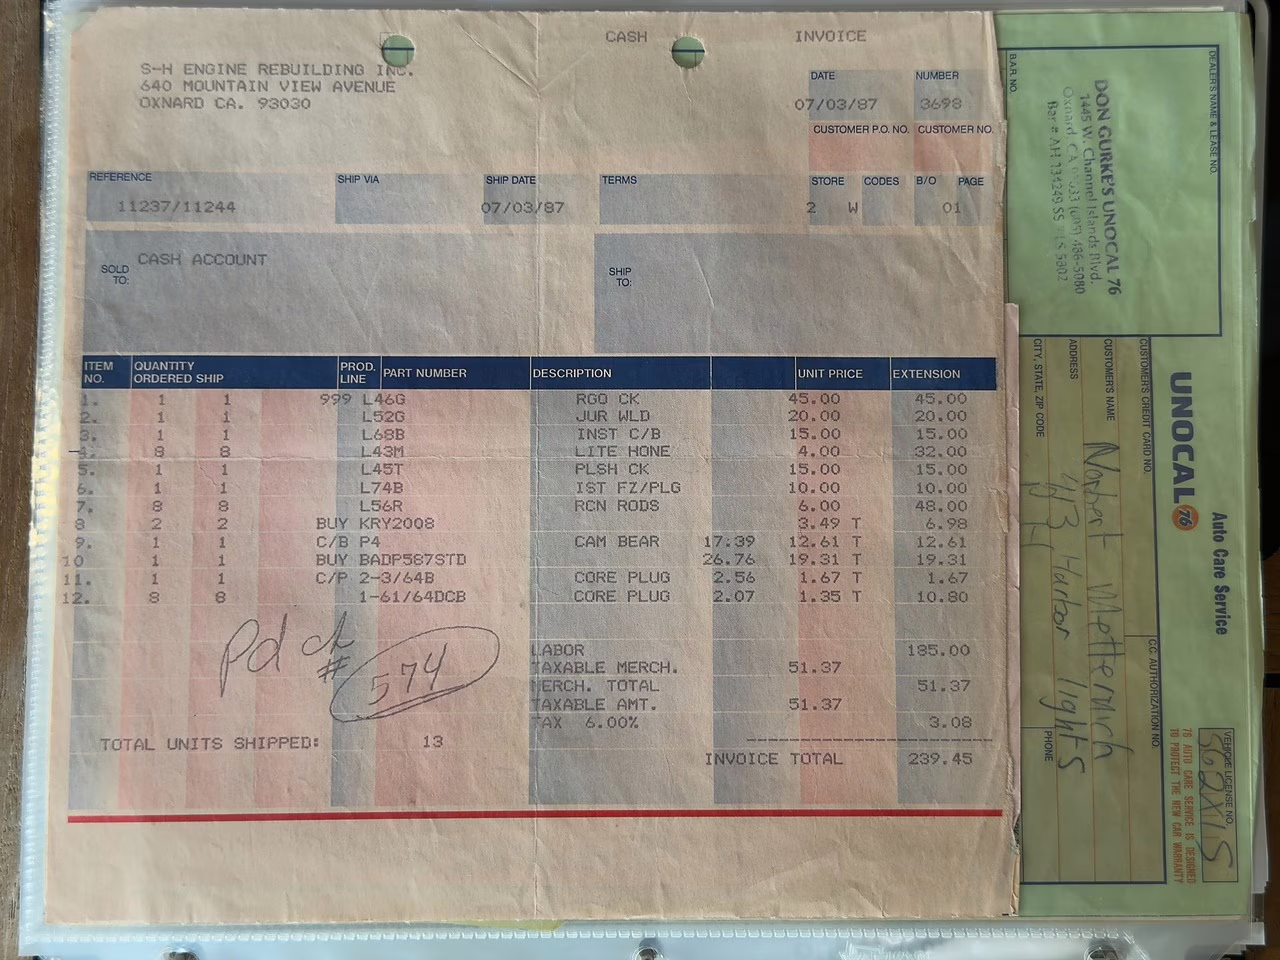 CASH INVOICE
S-H ENGINE REBUILDING INC.
640 MOUNTAIN VIEW AVENUE
OXNARD CA. 93030
DATE NUMBER
07/03/87 3698
CUSTOMER P.O. NO. CUSTOMER NO.
REFERENCE SHIP VIA SHIP DATE TERMS STORE CODES B/O PAGE
11237/11244 07/03/87 2 W 01
SOLD TO: CASH ACCOUNT
SHIP TO:
ITEM NO. QUANTITY ORDERED SHIP PROD. LINE PART NUMBER DESCRIPTION UNIT PRICE EXTENSION
1. 1 1 999 L46G RGO CK 45.00 45.00
2. 1 1 L52G JUR WLD 20.00 20.00
3. 1 1 L68B INST C/B 15.00 15.00
4. 8 8 L43M LITE HONE 4.00 32.00
5. 1 1 L45T PLSH CK 15.00 15.00
6. 1 1 L74B IST FZ/PLG 10.00 10.00
7. 8 8 L56R RCN RODS 6.00 48.00
8 2 2 BUY KRY2008 3.49 T 6.98
9. 1 1 C/B P4 CAM BEAR 17.39 12.61 T 12.61
10 1 1 BUY BADP587STD 26.76 19.31 T 19.31
11. 1 1 C/P 2-3/64B CORE PLUG 2.56 1.67 T 1.67
12. 8 8 1-61/64DCB CORE PLUG 2.07 1.35 T 10.80
Pd ck
# 574
LABOR 185.00
TAXABLE MERCH. 51.37
MERCH. TOTAL 51.37
TAXABLE AMT. 51.37
TAX 6.00% 3.08
TOTAL UNITS SHIPPED: 13
INVOICE TOTAL 239.45
DEALER'S NAME & LEASE NO.
DON GURKE'S UNOCAL 76
1445 W. Channel Islands Blvd.
Oxnard, CA (805) 486-5080
Bar # AH 134249
B.A.R. NO.
UNOCAL 76
Auto Care Service
76 AUTO CARE SERVICE IS DESIGNED
TO PROTECT THE NEW CAR WARRANTY
VEHICLE LICENSE NO.
CUSTOMER'S CREDIT CARD NO.
C.C. AUTHORIZATION NO.
CUSTOMER'S NAME
ADDRESS Harbor lights
CITY, STATE, ZIP CODE
PHONE